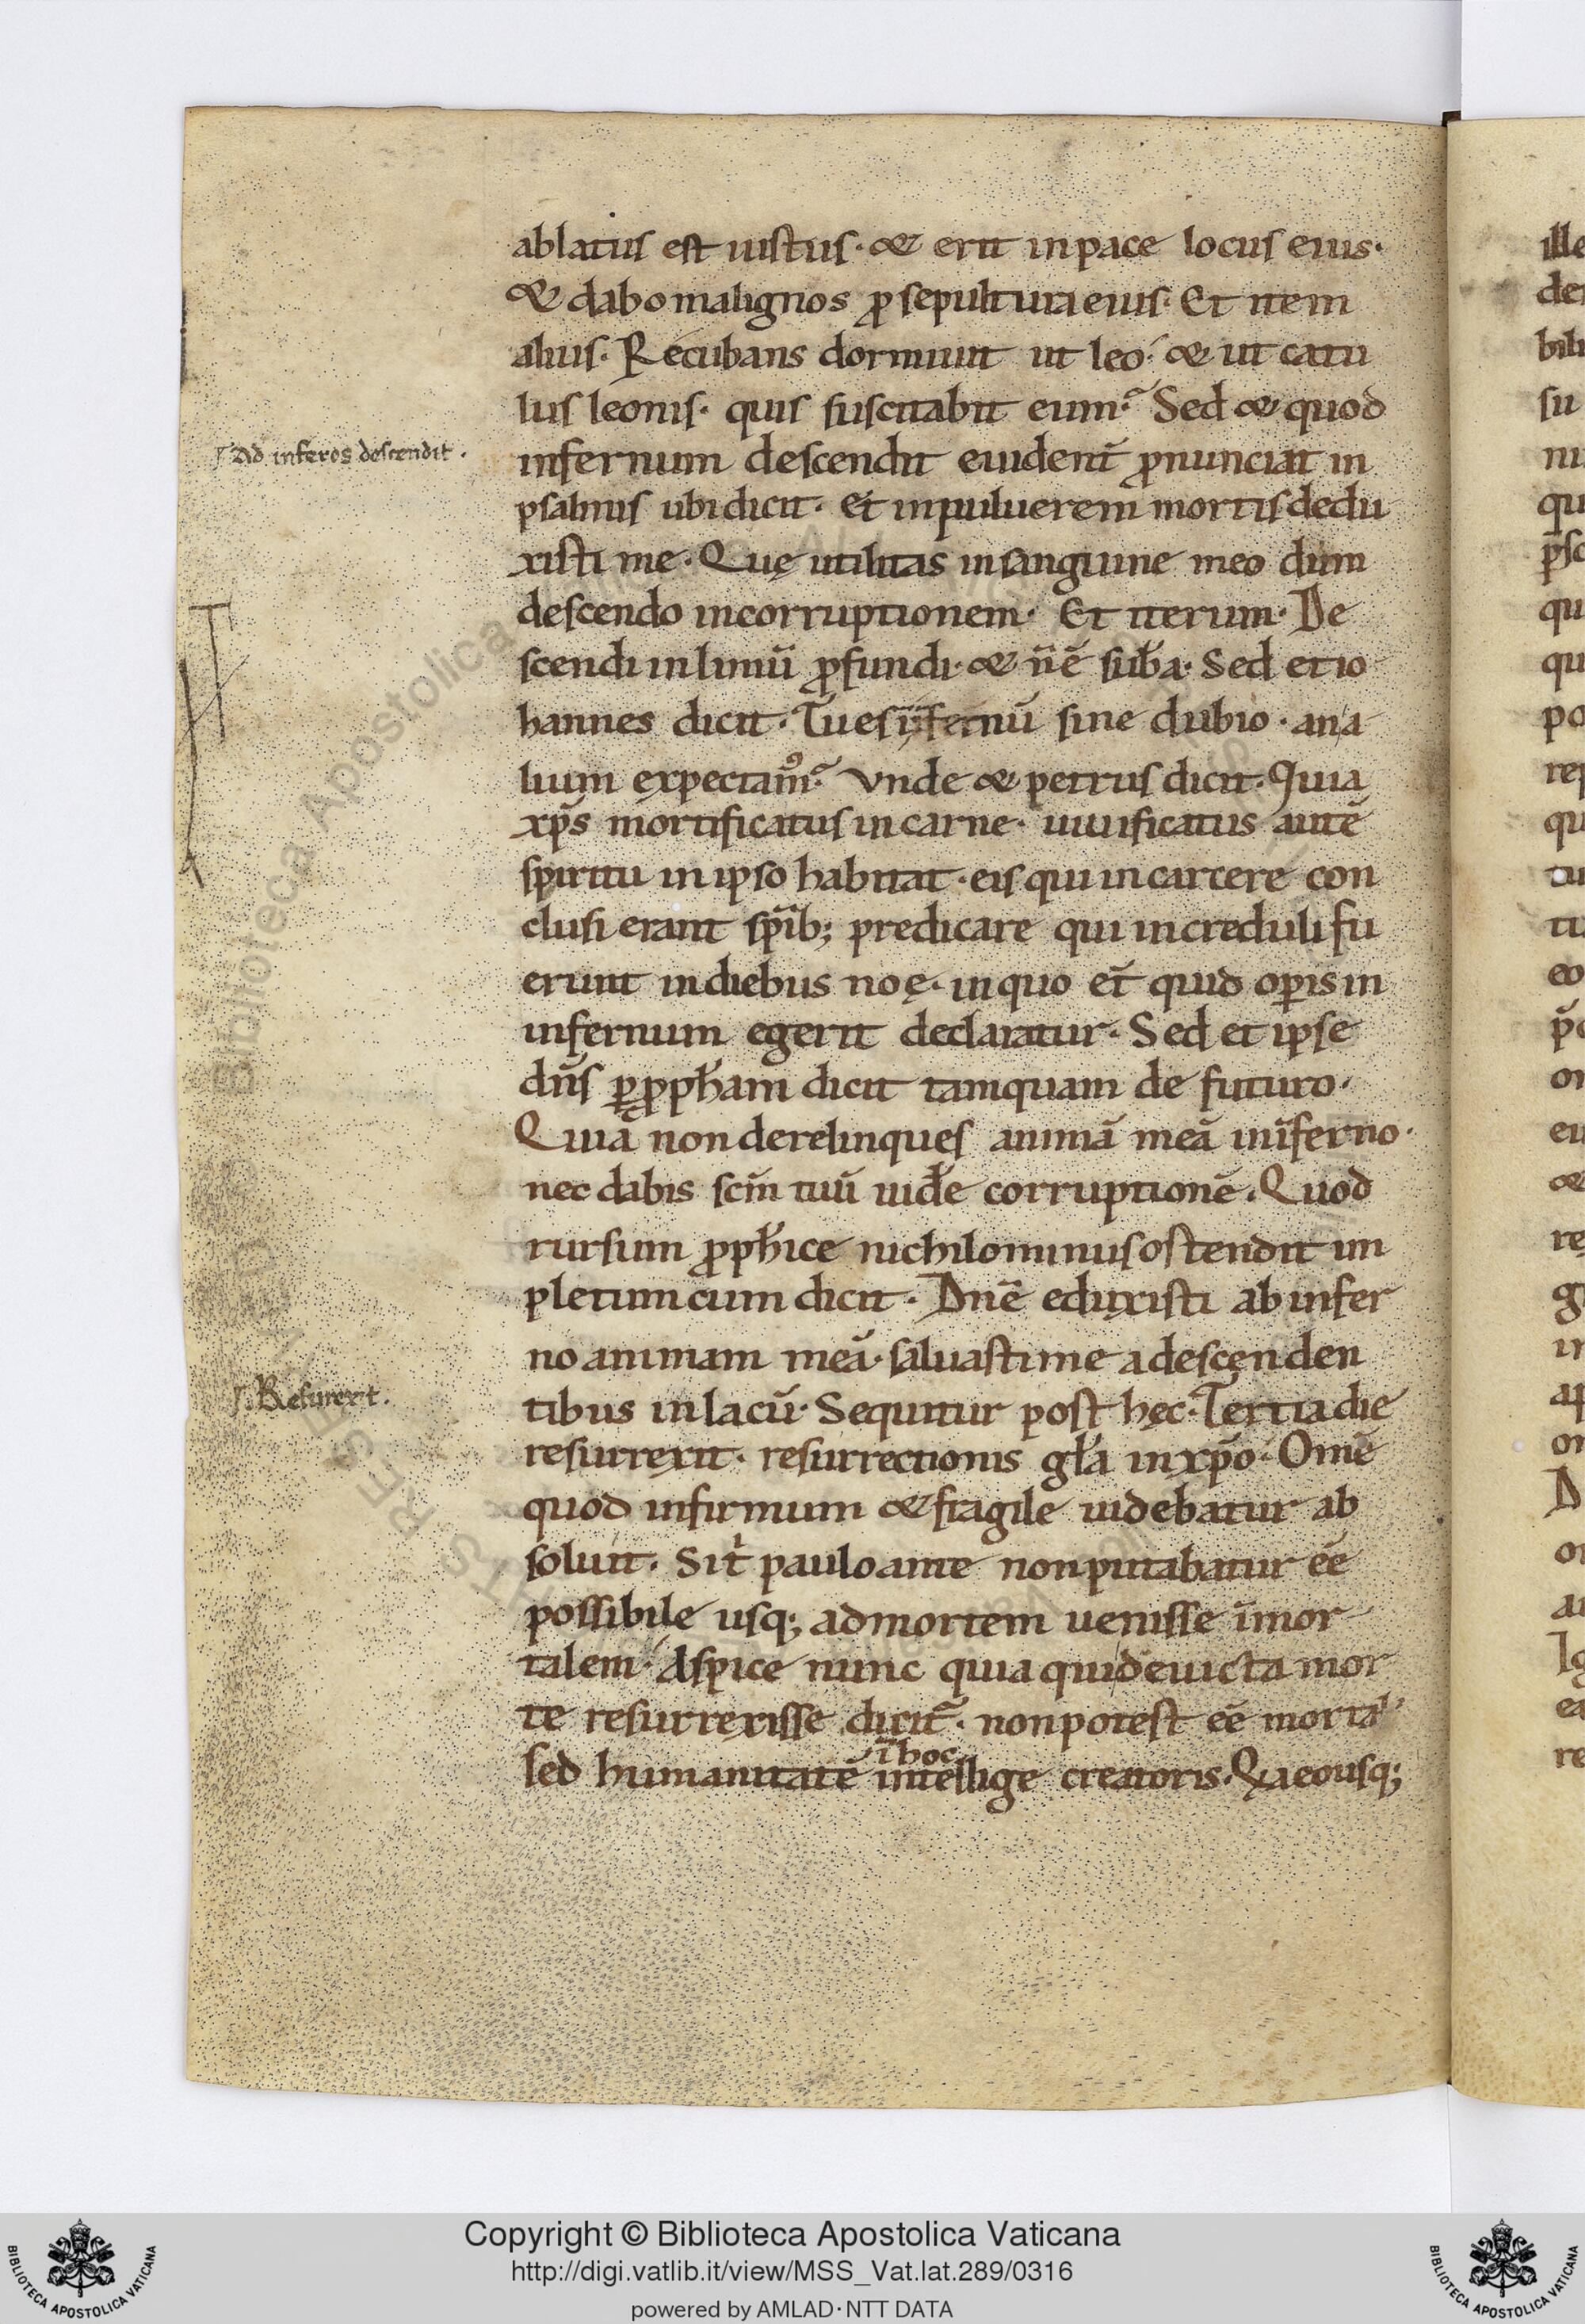 ablatus est iustus· & erit in pace locus eius·
& dabo malignos ꝓ sepultura eius· Et item
alius· Recubans dormiuit ut leo· & ut catu
lus leonis· quis suscitabit eum? Sed & quod
Ad inferos descendit·
infernum descendit euident̄ ꝓnunciat in
psalmis ubi dicit· Et in puluerem mortis dedu
xisti me· Quę utilitas in sanguine meo dum
descendo in corruptionem· Et iterum· De
scendi in limū ꝓfundi· & n̄ ē sub̄a· Sed et io
hannes dicit· Tu es
fernū sine dubio· an a
lium expectamꝰ? Vnde & petrus dicit· Quia
xp̄s mortificatus in carne· uiuificatus autē
spiritu in ipso habitat· eis qui in carcere con
clusi erant sp̄ib; predicare qui increduli fu
erunt in diebus noę· in quo et̄ quid oꝑis in
infernum egerit declaratur· Sed et ipse
dn̄s ꝑ ꝓph̄am dicit tamquam de futuro·
Quia non derelinques animā meā in īferno·
nec dabis sc̄m tuū uid̄e corruptionē· Quod
rursum ꝓph̄ice nichilominus ostendit im
pletum cum dicit· Dn̄e eduxisti ab infer
no animam meā· saluasti me a descenden
Resurexit·
tibus in lacū· Sequitur post hęc· Tertia die
resurrexit· resurrectionis gl̄a in xp̄o· Om̄e
quod infirmum & fragile uidebatur ab
soluit· Si t̄ paulo ante non putabatur ēē
possibile usq; ad mortem uenisse īmor
talem· Aspice nunc quia qui deuicta mor
te resurrexisse dicit̄· non potest ēē mortal'
ī hoc
sed humanitatē intellige creatoris· Q̄a eousq;
ille
bili
su
qu
qu
qu
po
qu
eo
eu
&
ap
D
Copyright © Biblioteca Apostolica Vaticana
http://digi.vatlib.it/view/MSS_Vat.lat.289/0316
powered by AMLAD·NTT DATA
BIBLIOTECA APOSTOLICA VATICANA
BIBLIOTECA APOSTOLICA VATICANA
Biblioteca Apostolica